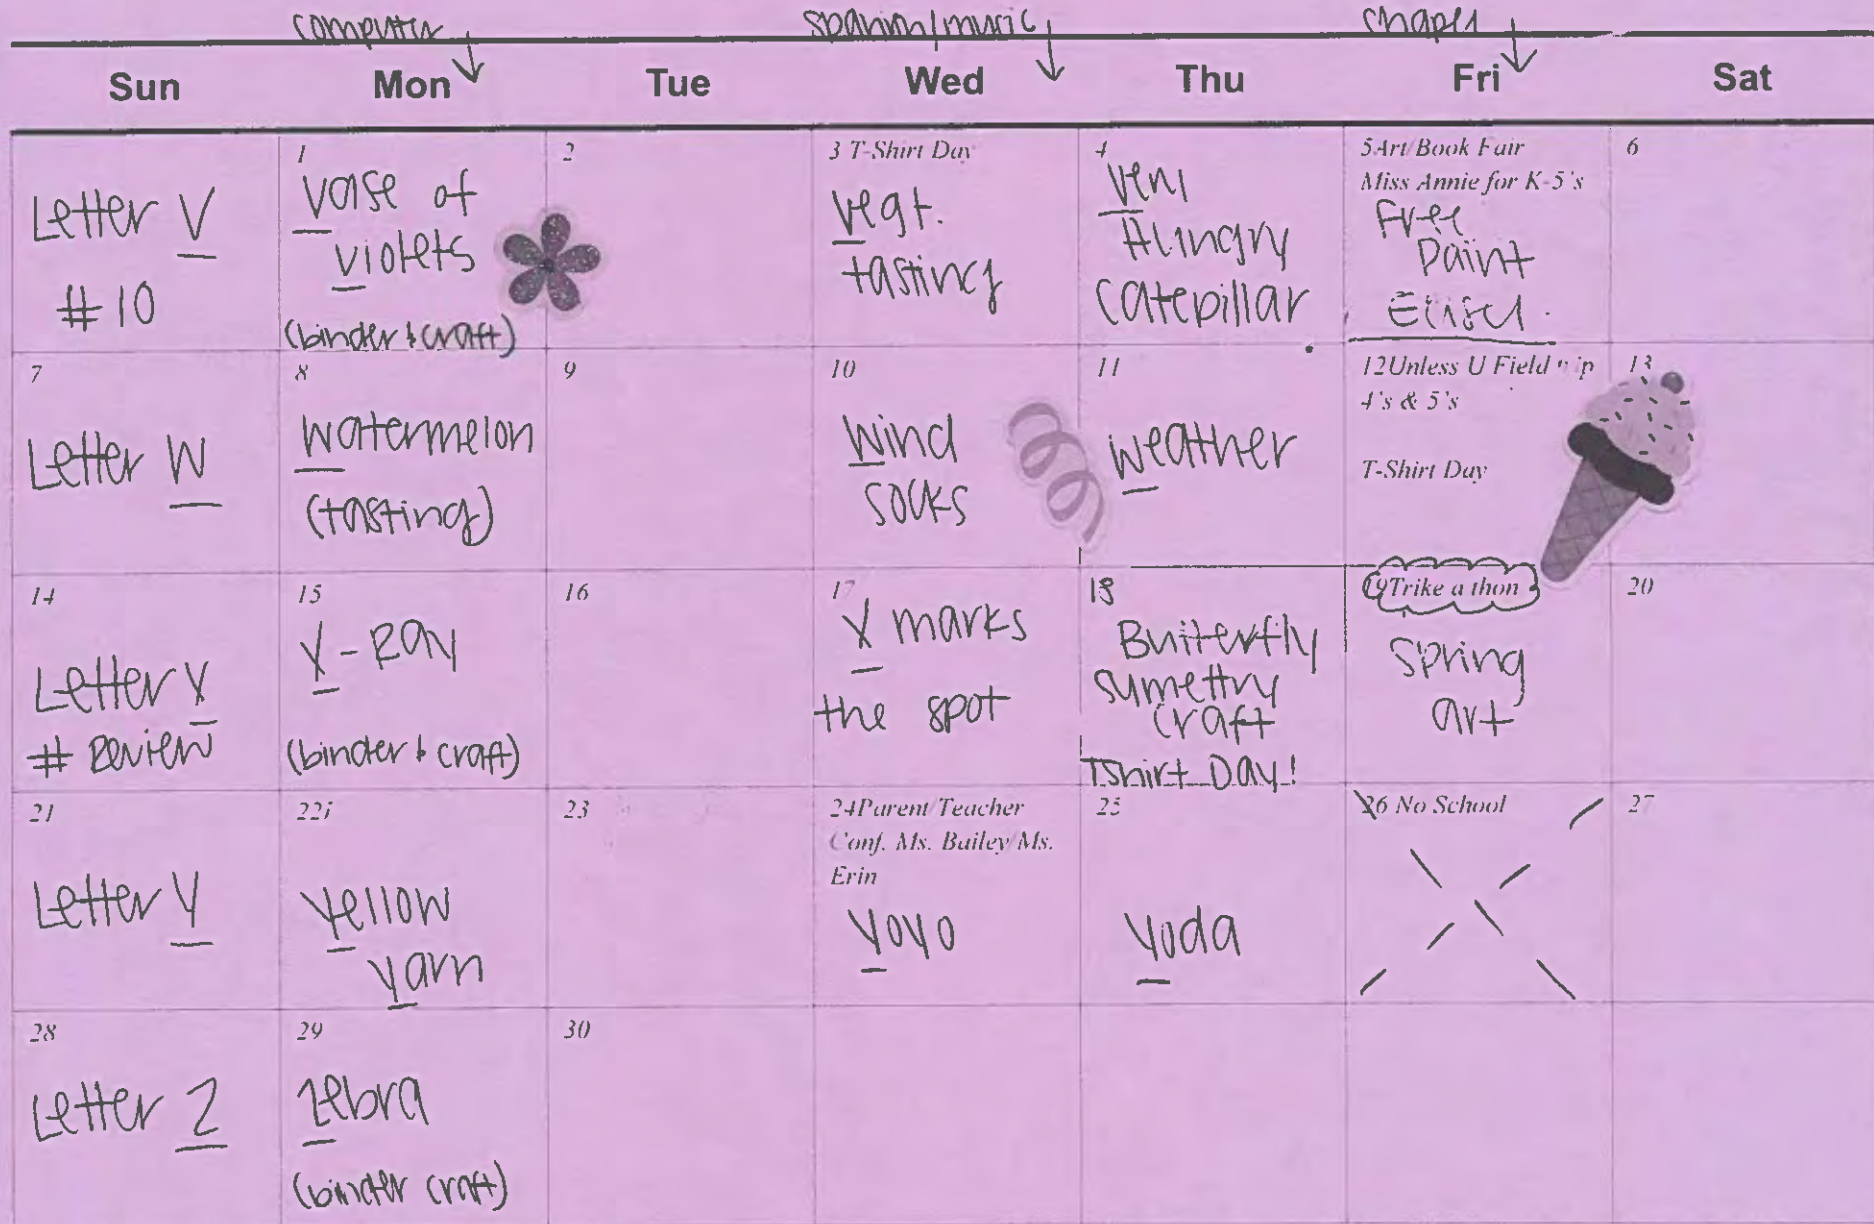 computer
spanish/music
chapel
Sun
Mon
Tue
Wed
Thu
Fri
Sat
Letter V
#10
1
Vase of
violets
(binder & craft)
2
3 T-Shirt Day
Vegt.
tasting
4
Very
Hungry
Catepillar
5Art/Book Fair
Miss Annie for K-5's
Free
Paint
Easel
6
7
Letter W
8
Watermelon
(tasting)
9
10
Wind
socks
11
Weather
12Unless U Field trip
4's & 5's
T-Shirt Day
13
14
Letter X
# Review
15
X-Ray
(binder & craft)
16
17
X marks
the spot
18
Butterfly
symettry
craft
Tshirt Day!
19Trike a thon
Spring
art
20
21
Letter Y
22i
Yellow
yarn
23
24Parent/Teacher
Conf. Ms. Bailey/Ms.
Erin
Yoyo
25
Yoda
26 No School
27
28
Letter Z
29
Zebra
(binder craft)
30